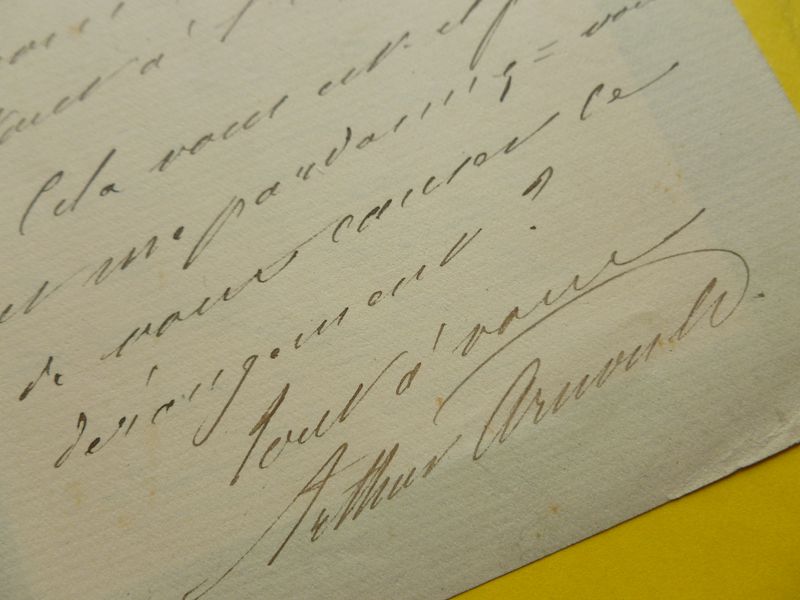 tout à
Cela vous est-il
et me pardonnez = vous
de vous causer ce
dérangement ?
Tout à vous
Arthur Arnould.